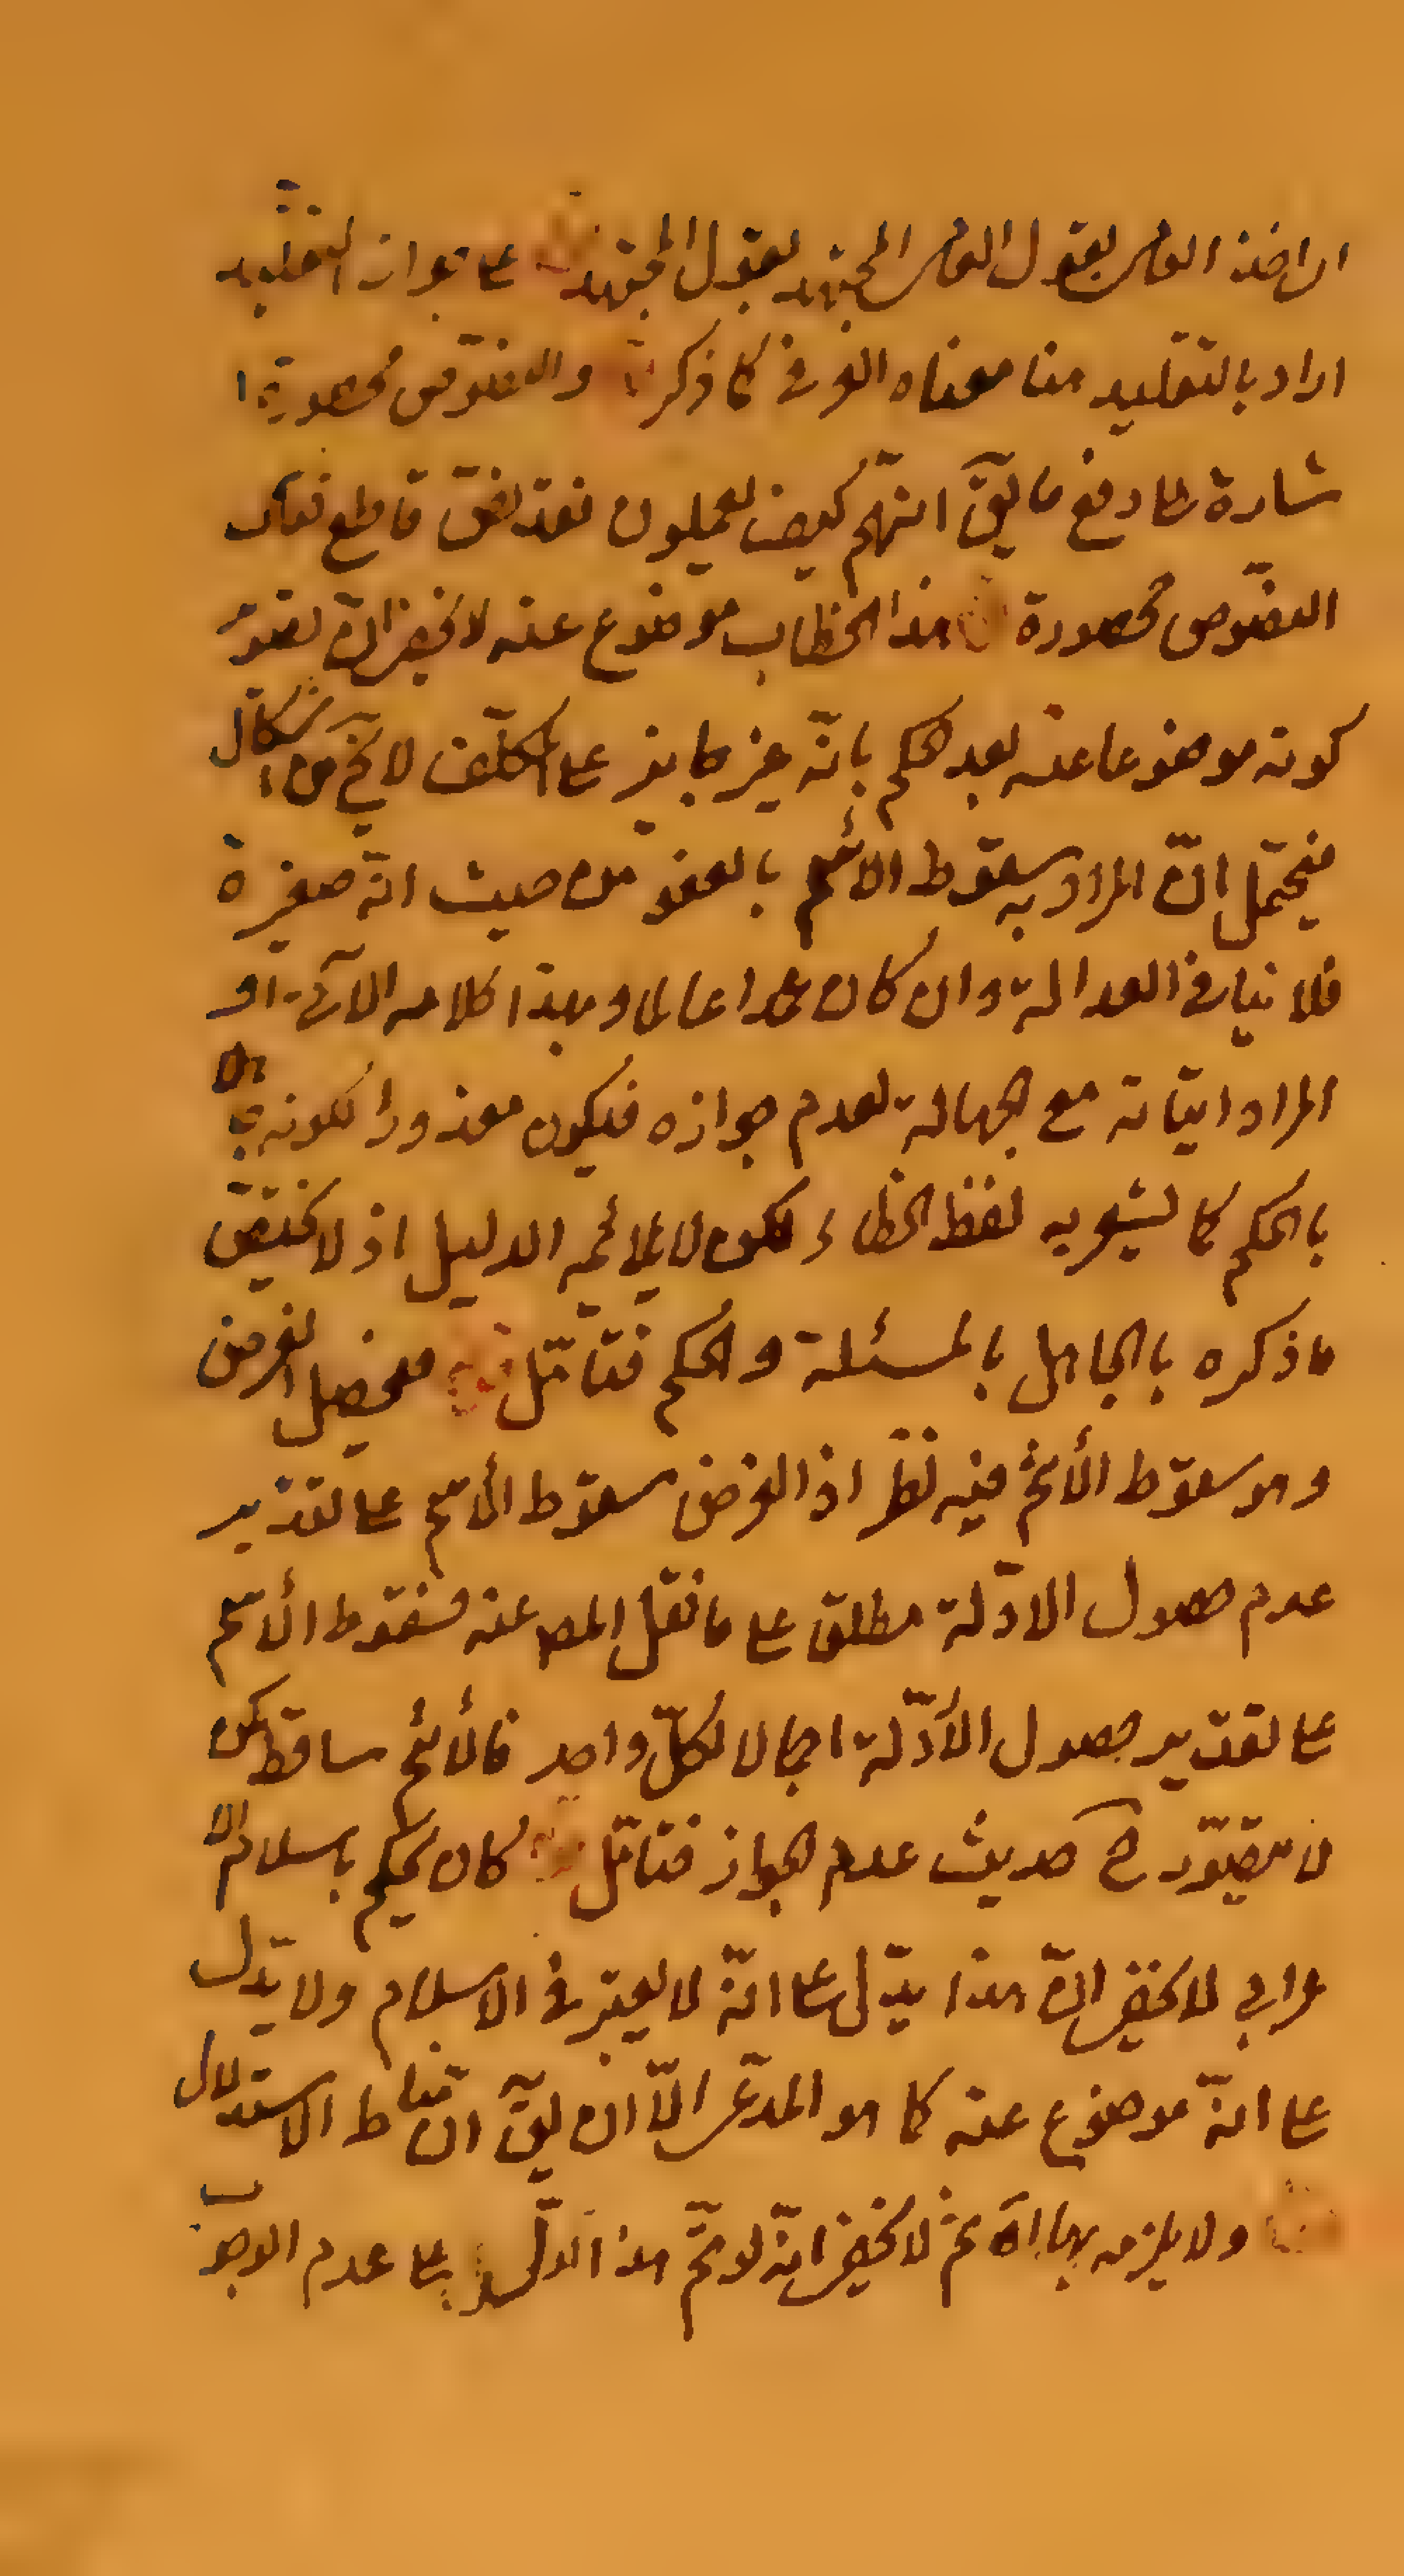 اى اخذ العامى بقول العامى المجتهد بقول المجتهد على جواز التقليد
اراد بالتقليد هنا معناه العرفى كما ذكر والنصوص محصورة ا
شارة الى دفع ما يقَ انهم كيف يعملون نقد نص قاطع فقال
النصوص محصورة هذا الخطاب موضوع عنه لا يخفى ان تصور
كونه موضوعا عنه بعد الحكم بانّه غير جايز على المكلّف لا يخ من اشكال
فيحتمل انّ المراد به سقوط الأثم بالعفو من حيث انّه صغيرة
فلا ينافى العدالة وان كان عمدا عالما وبهذا كلامه الآتى او
المراد اتيانه مع الجهالة لعدم جوازه فيكون معذورا لكونه جاهلا
بالحكم كما يشعر به لفظ الخطاء لكن لا يلائمه الدليل اذ لا يختصّ
ما ذكره بالجاهل بالمسئلة والحكم فتامّل فيحصل الغرض
وهو سقوط الأثم فيه نظر اذ الغرض سقوط الأثم على تقدير
عدم حصول الادّلة مطلق على ما نقل المص عنه فسقوط الأثم
على تقدير حصول الأدّلة اجمالا لكلّ واحد فالأثم ساقط لكن
لا يتصوّر ح حديث عدم الجواز فتامّل كان يحكم باسلام الا
عرابى لا يخفى انّ هذا يدّل على انّه لا يعتبر فى الاسلام ولا يدّل
على انّه موضوع عنه كما هو المدّعى الّا ان يقَ انّ مناط الاستدلال
ولا يلزمه بها اه ثم لا يخفى انّه لو تمّ هذا لدلّ على عدم الوجوب